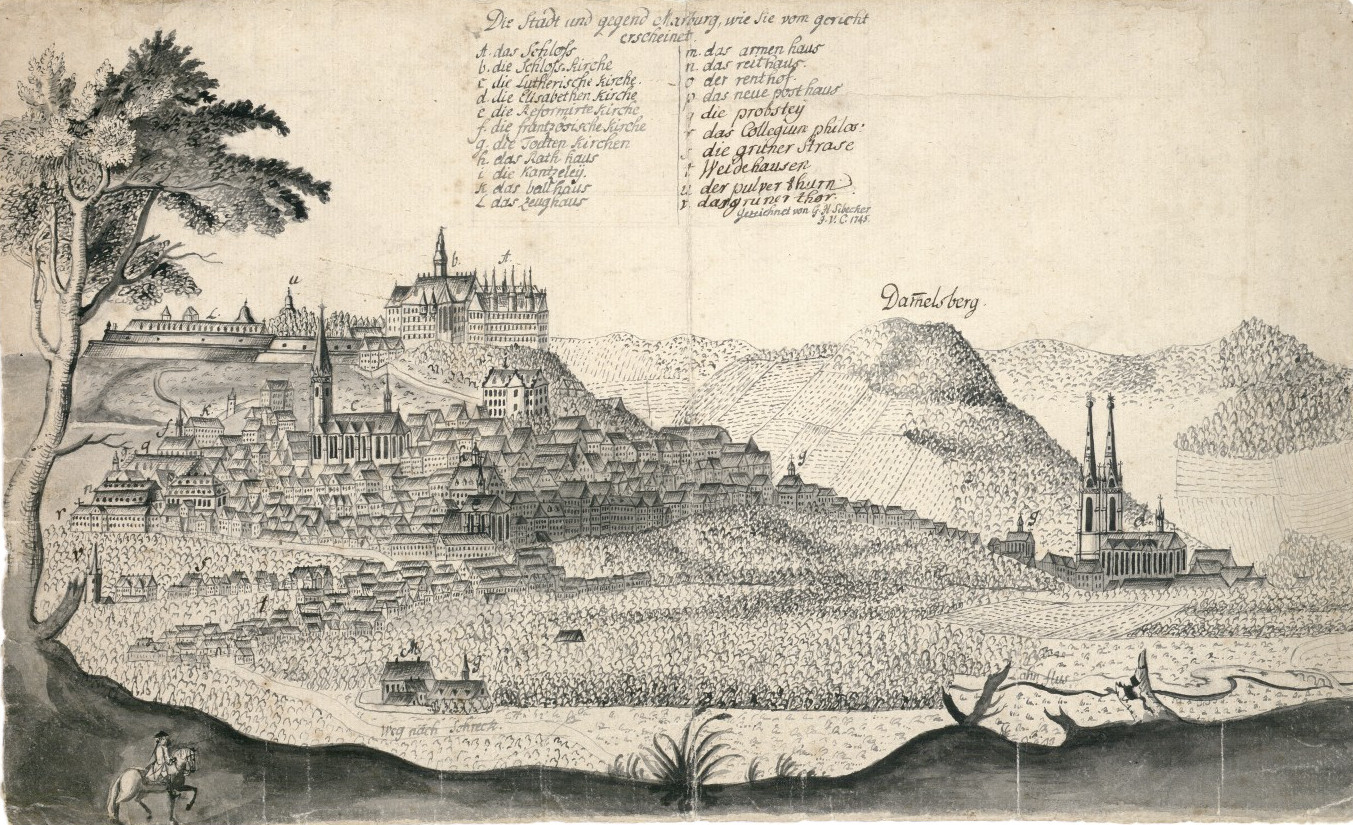 Die Stadt und gegend Marburg, wie sie vom gericht
erscheinet.
A. das Schloss
b. die Schloss Kirche
c. die Lutherische Kirche.
d. die Elisabethen Kirche
e. die Reformirte Kirche
f. die frantzösische Kirche
g. die Todten Kirchen
h. das Rath haus
i. die Kantzeley.
k. das ball haus
l. das Zeughaus
m. das armen haus
n. das reithaus.
o. der renthof.
p. das neue posthaus
q. die probstey
r. das Collegium philos:
s. die grüner Strase
t. Weidehausen
u. der pulver thurn
gruner thor.
gezeichnet von G. H. Sibecker
J. V. C. 1745.
b.
A.
u
L
Dam̄elsberg.
K
c
f
q
n
g
r
g
d
v
s
t
M
g
Weg nach Schreck